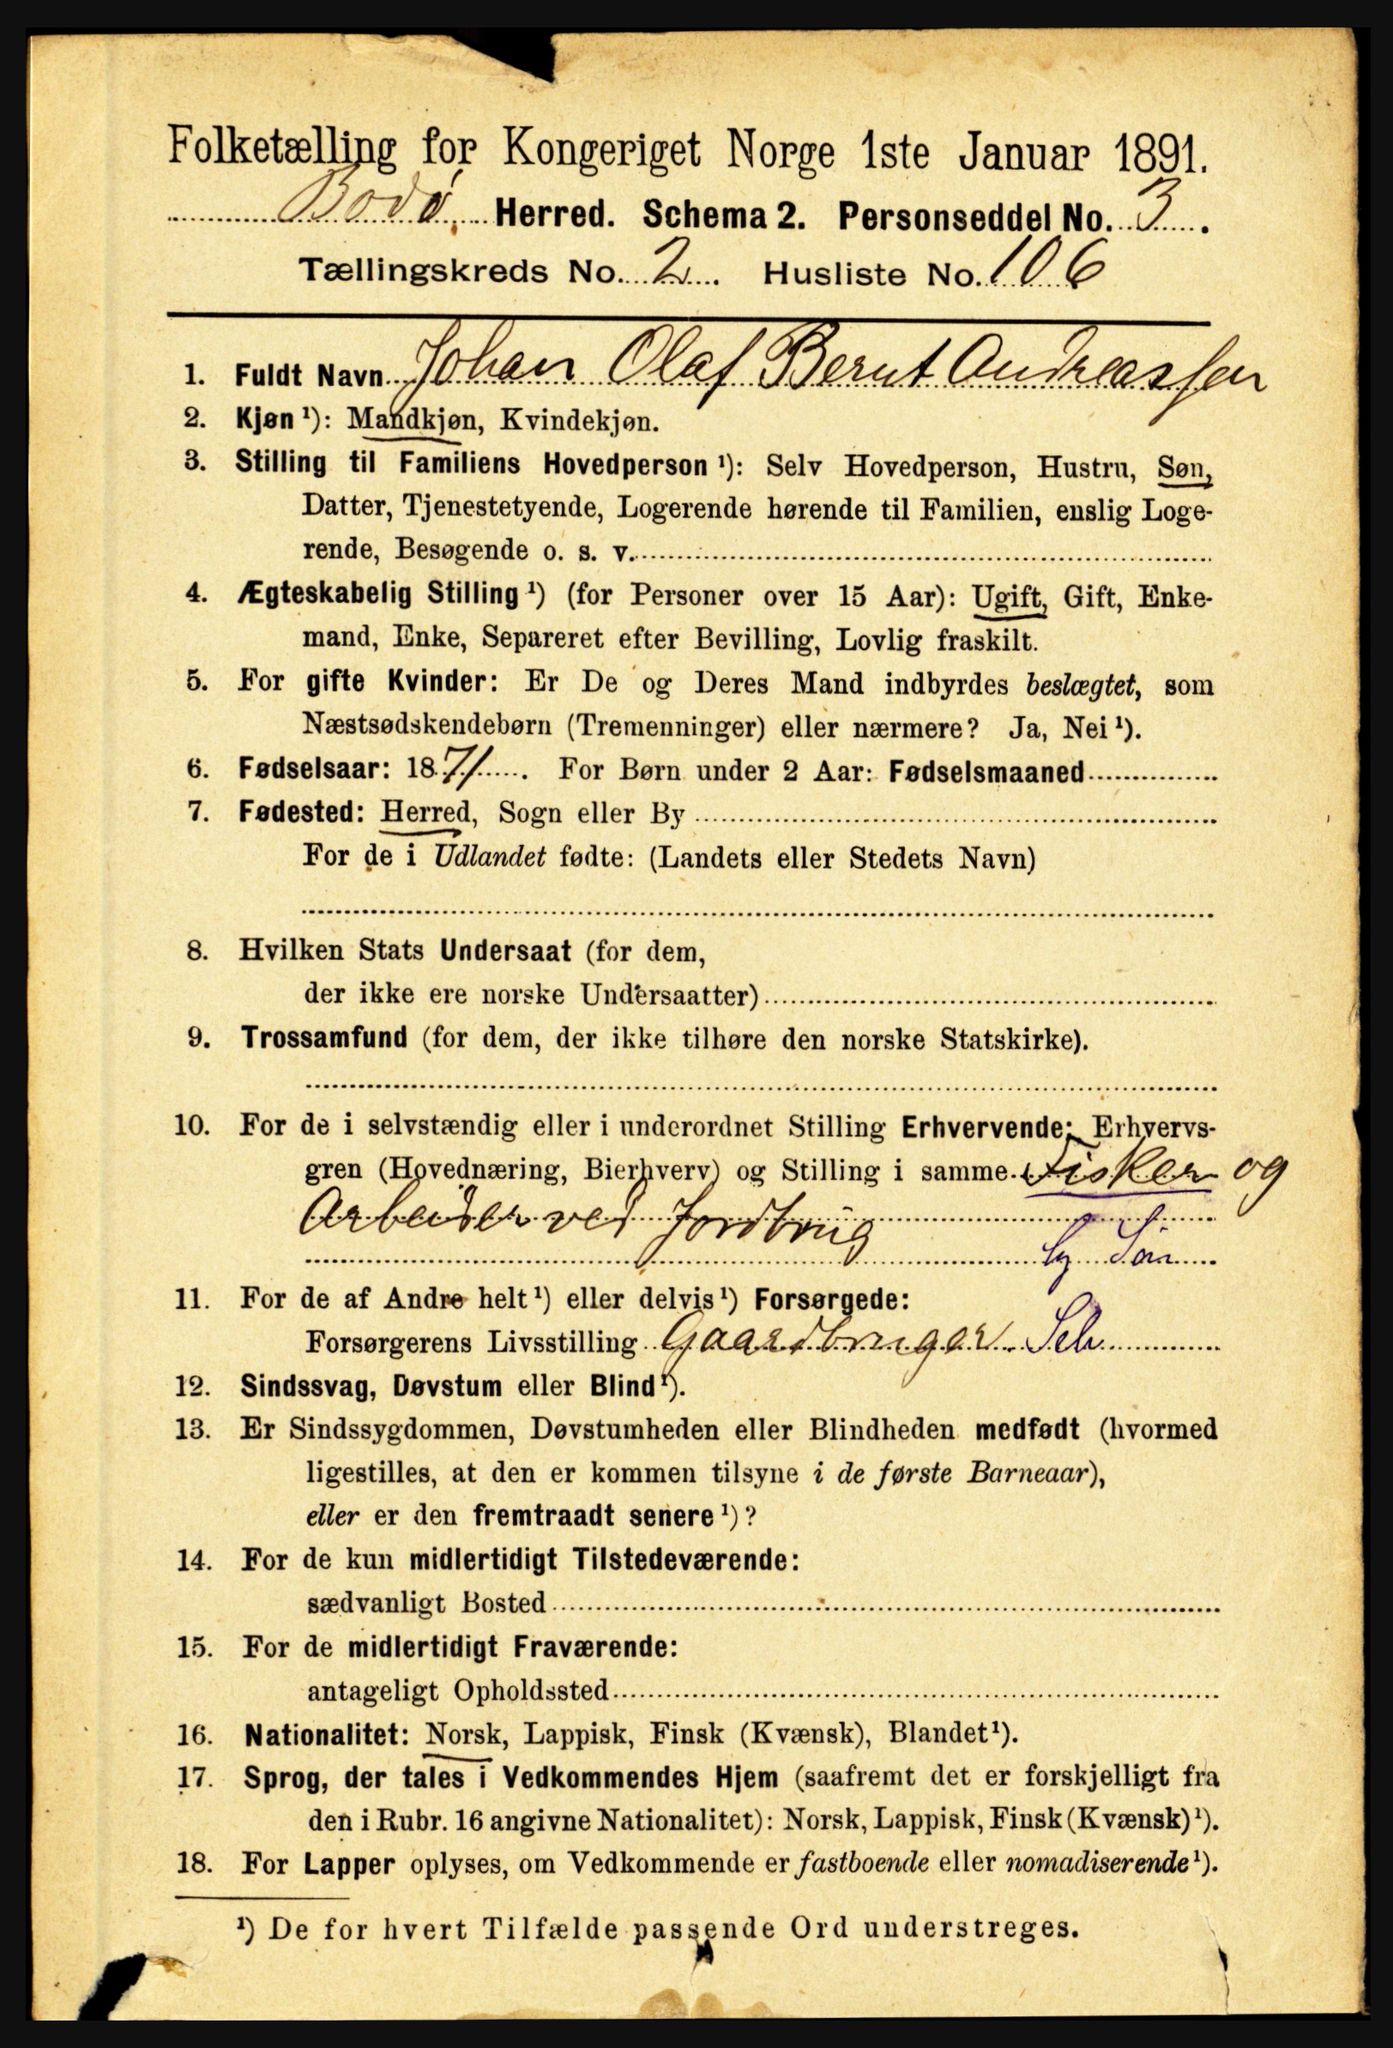 Folketælling for Kongeriget Norge 1ste Januar 1891.
Bodø Herred. Schema 2. Personseddel No. 3.
Tællingskreds No. 2. Husliste No. 106
1. Fuldt Navn Johan Olaf Bernt Andreassen
2. Kjøn ¹): Mandkjøn, Kvindekjøn.
3. Stilling til Familiens Hovedperson ¹): Selv Hovedperson, Hustru, Søn,
Datter, Tjenestetyende, Logerende hørende til Familien, enslig Loge-
rende, Besøgende o. s. v.
4. Ægteskabelig Stilling ¹) (for Personer over 15 Aar): Ugift, Gift, Enke-
mand, Enke, Separeret efter Bevilling, Lovlig fraskilt.
5. For gifte Kvinder: Er De og Deres Mand indbyrdes beslægtet, som
Næstsødskendebørn (Tremenninger) eller nærmere? Ja, Nei ¹).
6. Fødselsaar: 1871. For Børn under 2 Aar: Fødselsmaaned
7. Fødested: Herred, Sogn eller By
For de i Udlandet fødte: (Landets eller Stedets Navn)
8. Hvilken Stats Undersaat (for dem,
der ikke ere norske Undersaatter)
9. Trossamfund (for dem, der ikke tilhøre den norske Statskirke).
10. For de i selvstændig eller i underordnet Stilling Erhvervende: Erhvervs-
gren (Hovednæring, Bierhverv) og Stilling i samme Fisker og
Arbeider ved Jordbrug
Søn
11. For de af Andre helt ¹) eller delvis ¹) Forsørgede:
Forsørgerens Livsstilling Gaardbruger. Selv
12. Sindssvag, Døvstum eller Blind ¹).
13. Er Sindssygdommen, Døvstumheden eller Blindheden medfødt (hvormed
ligestilles, at den er kommen tilsyne i de første Barneaar),
eller er den fremtraadt senere ¹)?
14. For de kun midlertidigt Tilstedeværende:
sædvanligt Bosted
15. For de midlertidigt Fraværende:
antageligt Opholdssted
16. Nationalitet: Norsk, Lappisk, Finsk (Kvænsk), Blandet ¹).
17. Sprog, der tales i Vedkommendes Hjem (saafremt det er forskjelligt fra
den i Rubr. 16 angivne Nationalitet): Norsk, Lappisk, Finsk (Kvænsk) ¹).
18. For Lapper oplyses, om Vedkommende er fastboende eller nomadiserende ¹).
¹) De for hvert Tilfælde passende Ord understreges.